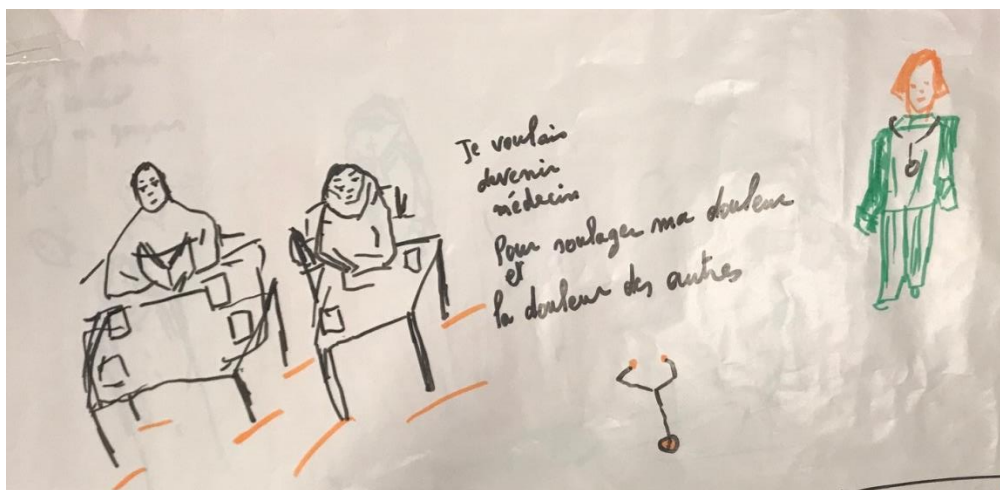 Je voulais
devenir
médecin
Pour soulager ma douleur
et
la douleur des autres